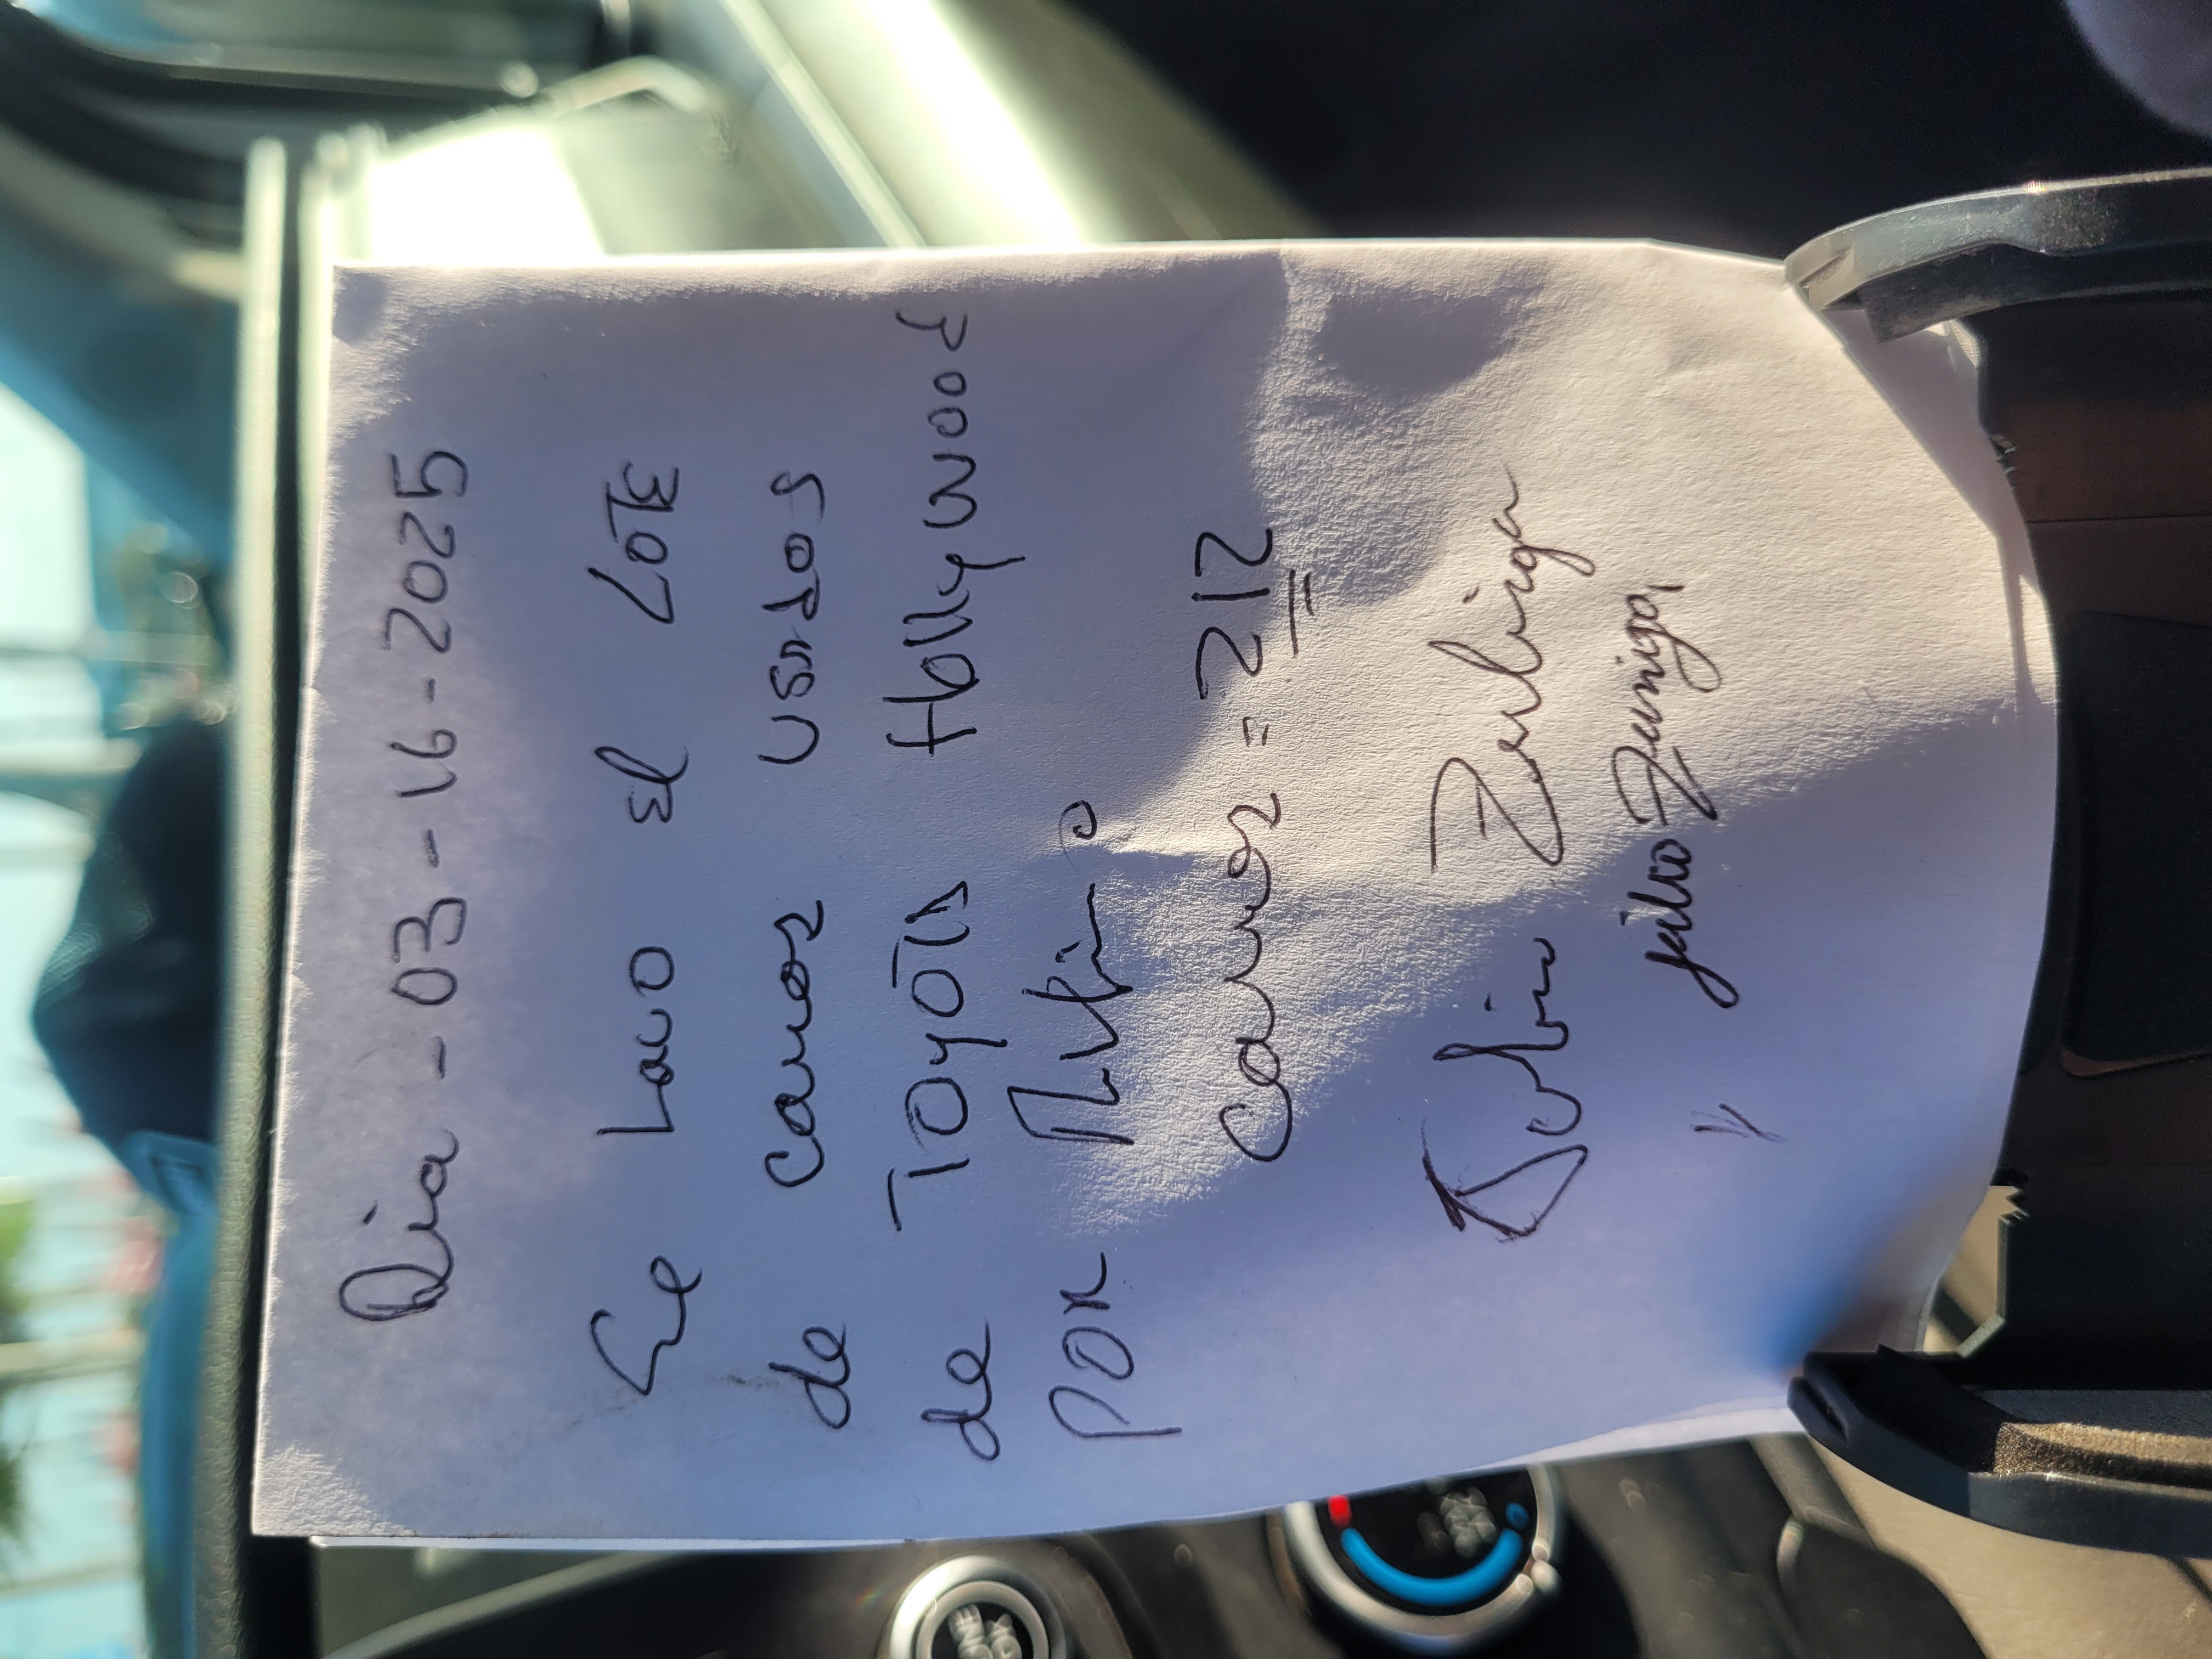 Dia - 03 - 16 - 2025
Se Lavo el LOTE
de carros usados
de TOYOTA Hollywood
POR
carros = 212
Zuniga
y julio Zuniga